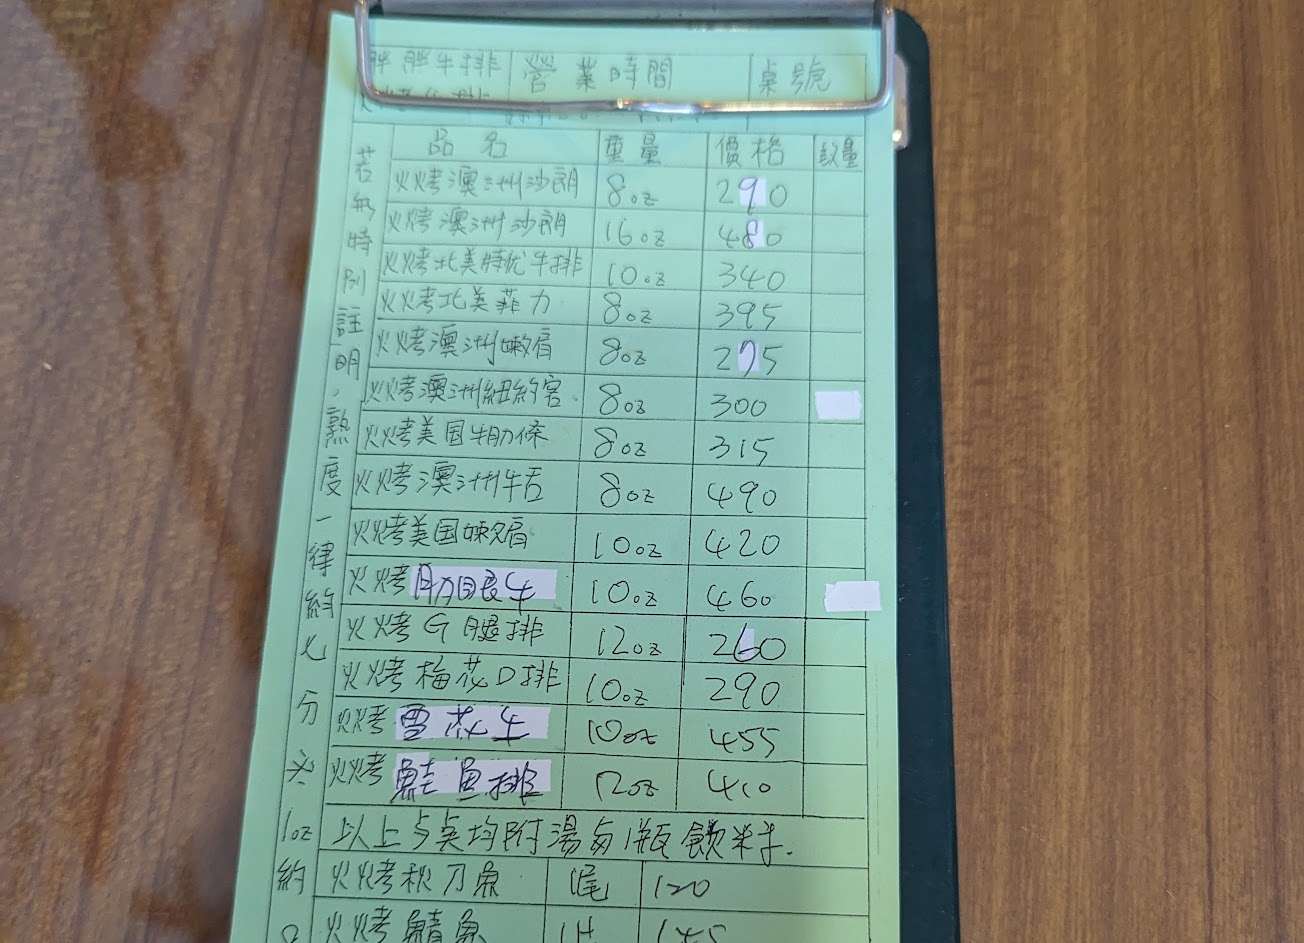 胖胖牛排 營業時間 桌號
品名 重量 價格 數量
火烤澳洲沙朗 8oz 290
火烤澳洲沙朗 16oz 480
火烤北美特优牛排 10oz 340
火烤北美菲力 8oz 395
火烤澳洲嫩肩 8oz 275
火烤澳洲紐約客 8oz 300
火烤美国牛肋條 8oz 315
火烤澳洲牛舌 8oz 490
火烤美国嫩肩 10oz 420
火烤肋眼牛 10oz 460
火烤G腿排 12oz 260
火烤梅花D排 10oz 290
火烤雪花牛 10oz 455
火烤鮭魚排 12oz 410
以上5桌均附湯與1瓶飲料.
火烤秋刀魚 1尾 120
火烤鯖魚 1片 145
若無特別註明,熟度一律約七分 1oz約